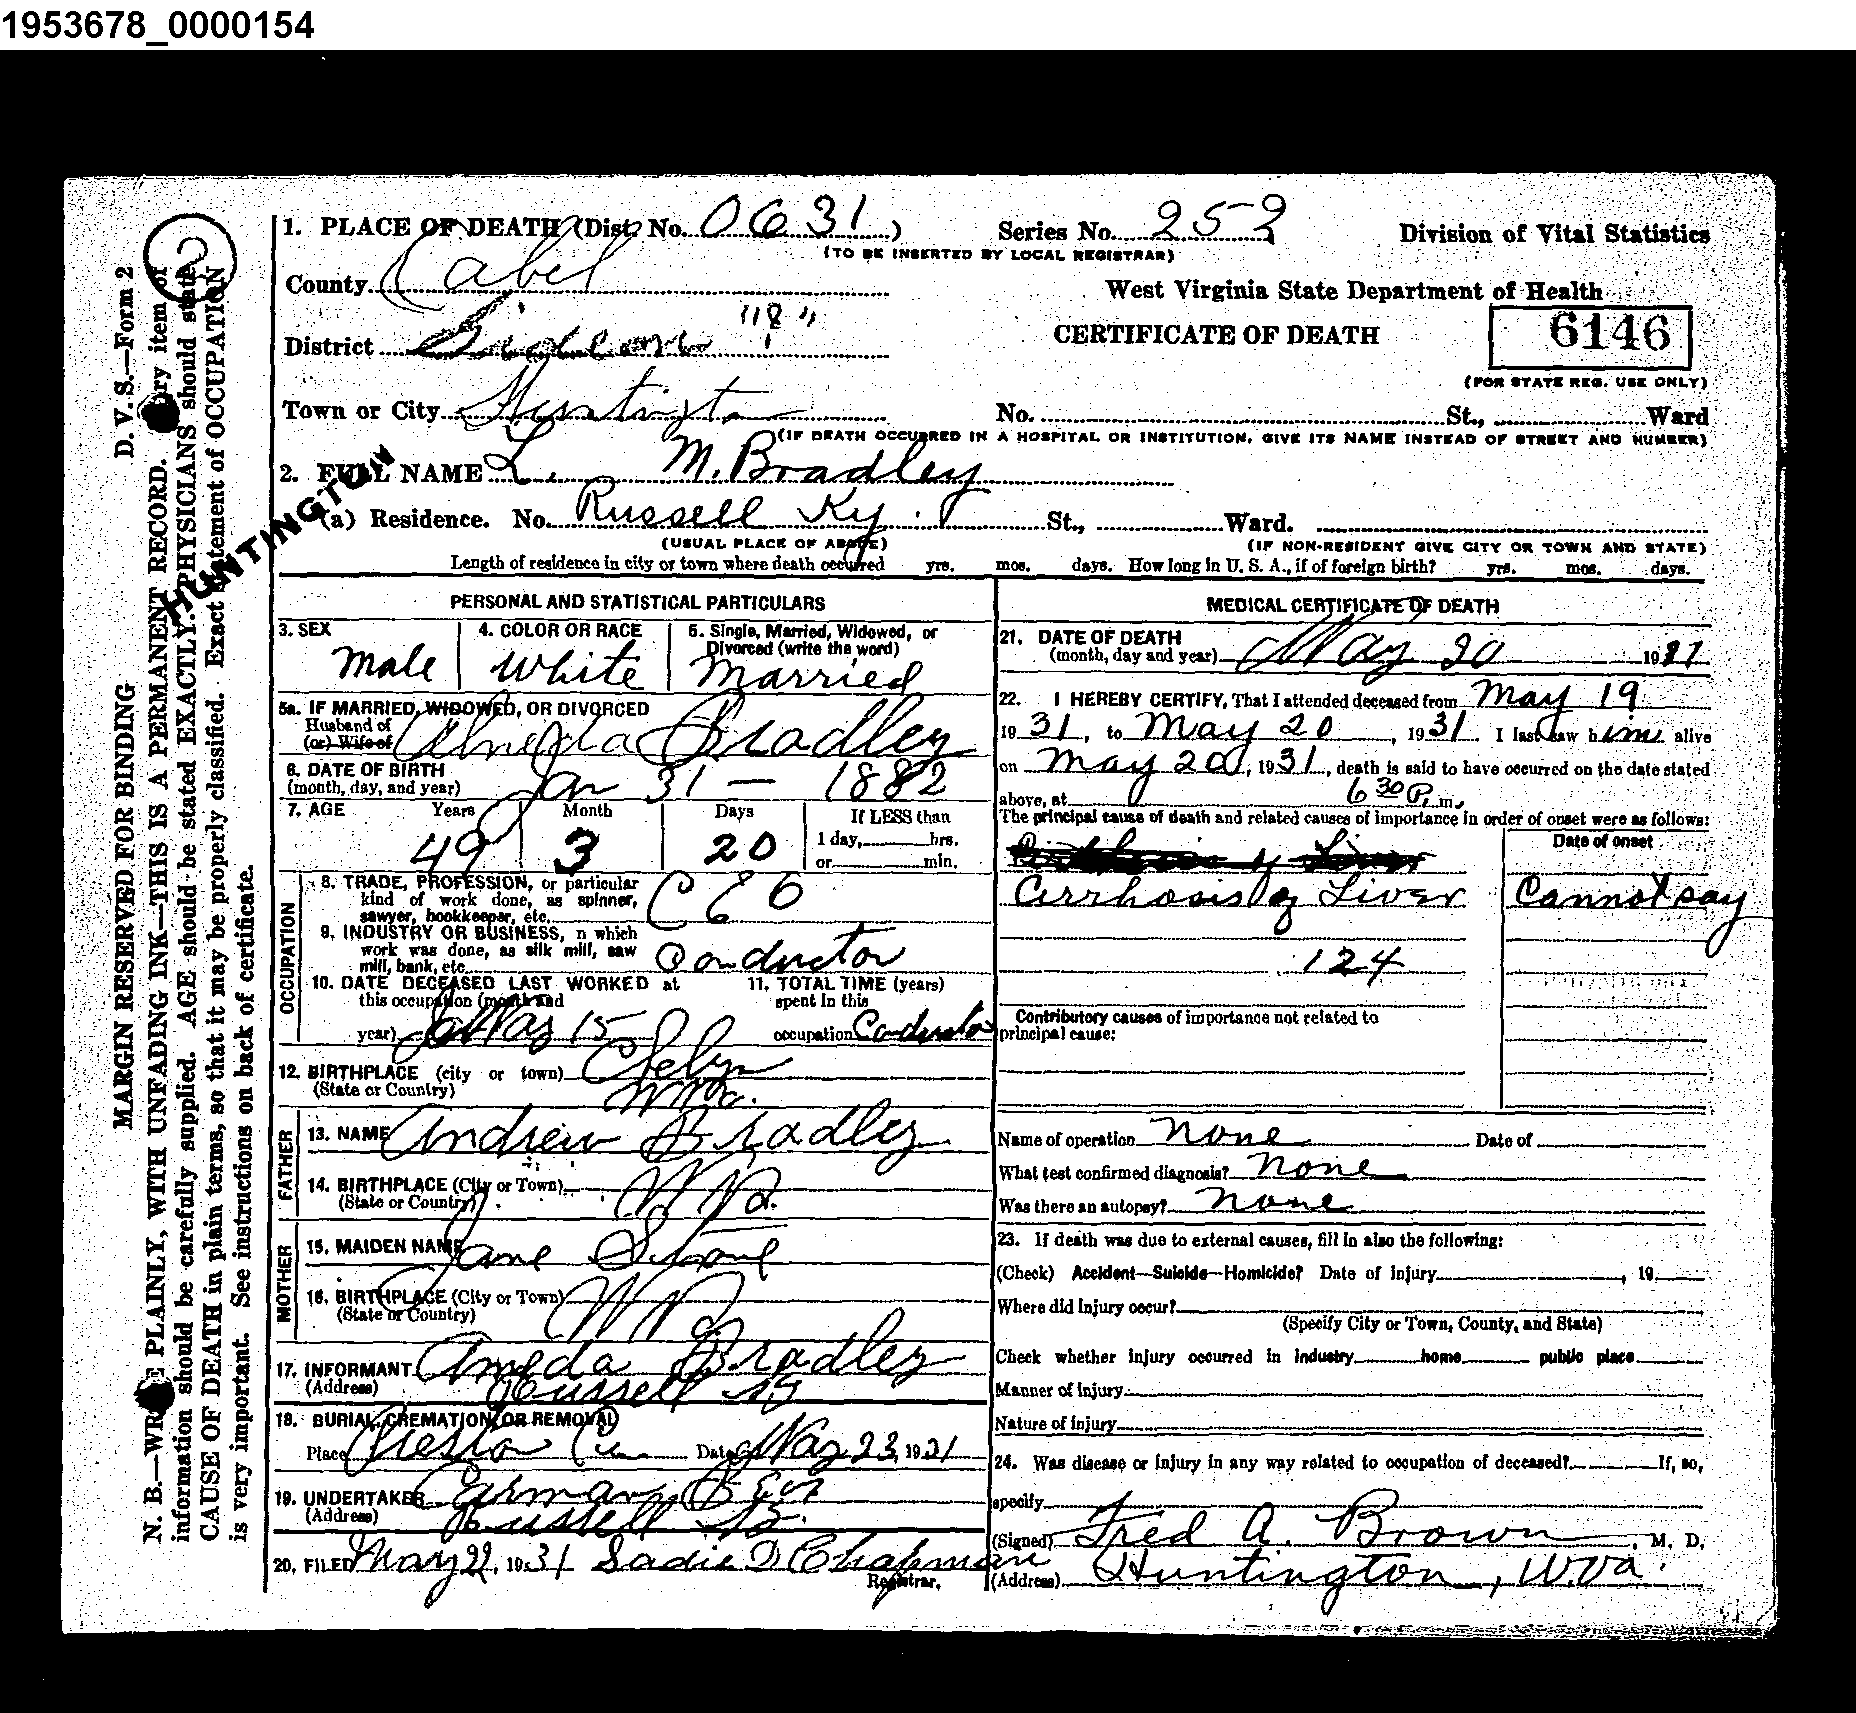 1953678_0000154
1. PLACE OF DEATH (Dist. No. 0631)
Series No. 252
Division of Vital Statistics
(TO BE INSERTED BY LOCAL REGISTRAR)
County Cabell
West Virginia State Department of Health
District Gideon "8"
CERTIFICATE OF DEATH
6146
(FOR STATE REG. USE ONLY)
Town or City Huntington
No. St., Ward
(IF DEATH OCCURRED IN A HOSPITAL OR INSTITUTION, GIVE ITS NAME INSTEAD OF STREET AND NUMBER)
2. FULL NAME L. M. Bradley
HUNTINGTON
(a) Residence. No. Russell Ky. St., Ward.
(USUAL PLACE OF ABODE)
(IF NON-RESIDENT GIVE CITY OR TOWN AND STATE)
Length of residence in city or town where death occurred yrs. mos. days. How long in U. S. A., if of foreign birth? yrs. mos. days.
PERSONAL AND STATISTICAL PARTICULARS
3. SEX Male
4. COLOR OR RACE White
5. Single, Married, Widowed, or Divorced (write the word) Married
5a. IF MARRIED, WIDOWED, OR DIVORCED
Husband of
(or) Wife of Almeda Bradley
6. DATE OF BIRTH
(month, day, and year) Jan 31 — 1882
7. AGE Years Month Days If LESS than
49 3 20 1 day, hrs.
or min.
OCCUPATION
8. TRADE, PROFESSION, or particular
kind of work done, as spinner,
sawyer, bookkeeper, etc. C & O
9. INDUSTRY OR BUSINESS, n which
work was done, as silk mill, saw
mill, bank, etc. Conductor
10. DATE DECEASED LAST WORKED at
this occupation (month and
year) May 15
11. TOTAL TIME (years)
spent in this
occupation Conductor
12. BIRTHPLACE (city or town)
(State or Country) W Va.
FATHER
13. NAME Andrew Bradley
14. BIRTHPLACE (City or Town)
(State or Country) W Va.
MOTHER
15. MAIDEN NAME Jane
16. BIRTHPLACE (City or Town)
(State or Country) W Va
17. INFORMANT Ameda Bradley
(Address) Russell Ky
18. BURIAL, CREMATION, OR REMOVAL
Place Date May 23, 1931
19. UNDERTAKER
(Address) Russell Ky.
20. FILED May 22, 1931 Sadie D Chapman
Registrar.
MEDICAL CERTIFICATE OF DEATH
21. DATE OF DEATH
(month, day and year) May 20 1931
22. I HEREBY CERTIFY, That I attended deceased from May 19
1931, to May 20, 1931. I last saw him alive
on May 20, 1931, death is said to have occurred on the date stated
above, at 6 30 P. m.
The principal cause of death and related causes of importance in order of onset were as follows:
Date of onset
Cirrhosis of Liver Cannot say
124
Contributory causes of importance not related to
principal cause:
Name of operation none Date of
What test confirmed diagnosis? none
Was there an autopsy? none
23. If death was due to external causes, fill in also the following:
(Check) Accident—Suicide—Homicide? Date of injury , 19
Where did injury occur?
(Specify City or Town, County, and State)
Check whether injury occurred in industry home public place
Manner of injury
Nature of injury
24. Was disease or injury in any way related to occupation of deceased? If, so,
specify
(Signed) Fred A. Brown, M. D.
(Address) Huntington, W.Va.
D. V. S.—Form 2
MARGIN RESERVED FOR BINDING
N. B.—WRITE PLAINLY, WITH UNFADING INK—THIS IS A PERMANENT RECORD. Every item of
information should be carefully supplied. AGE should be stated EXACTLY. PHYSICIANS should state
CAUSE OF DEATH in plain terms, so that it may be properly classified. Exact statement of OCCUPATION
is very important. See instructions on back of certificate.